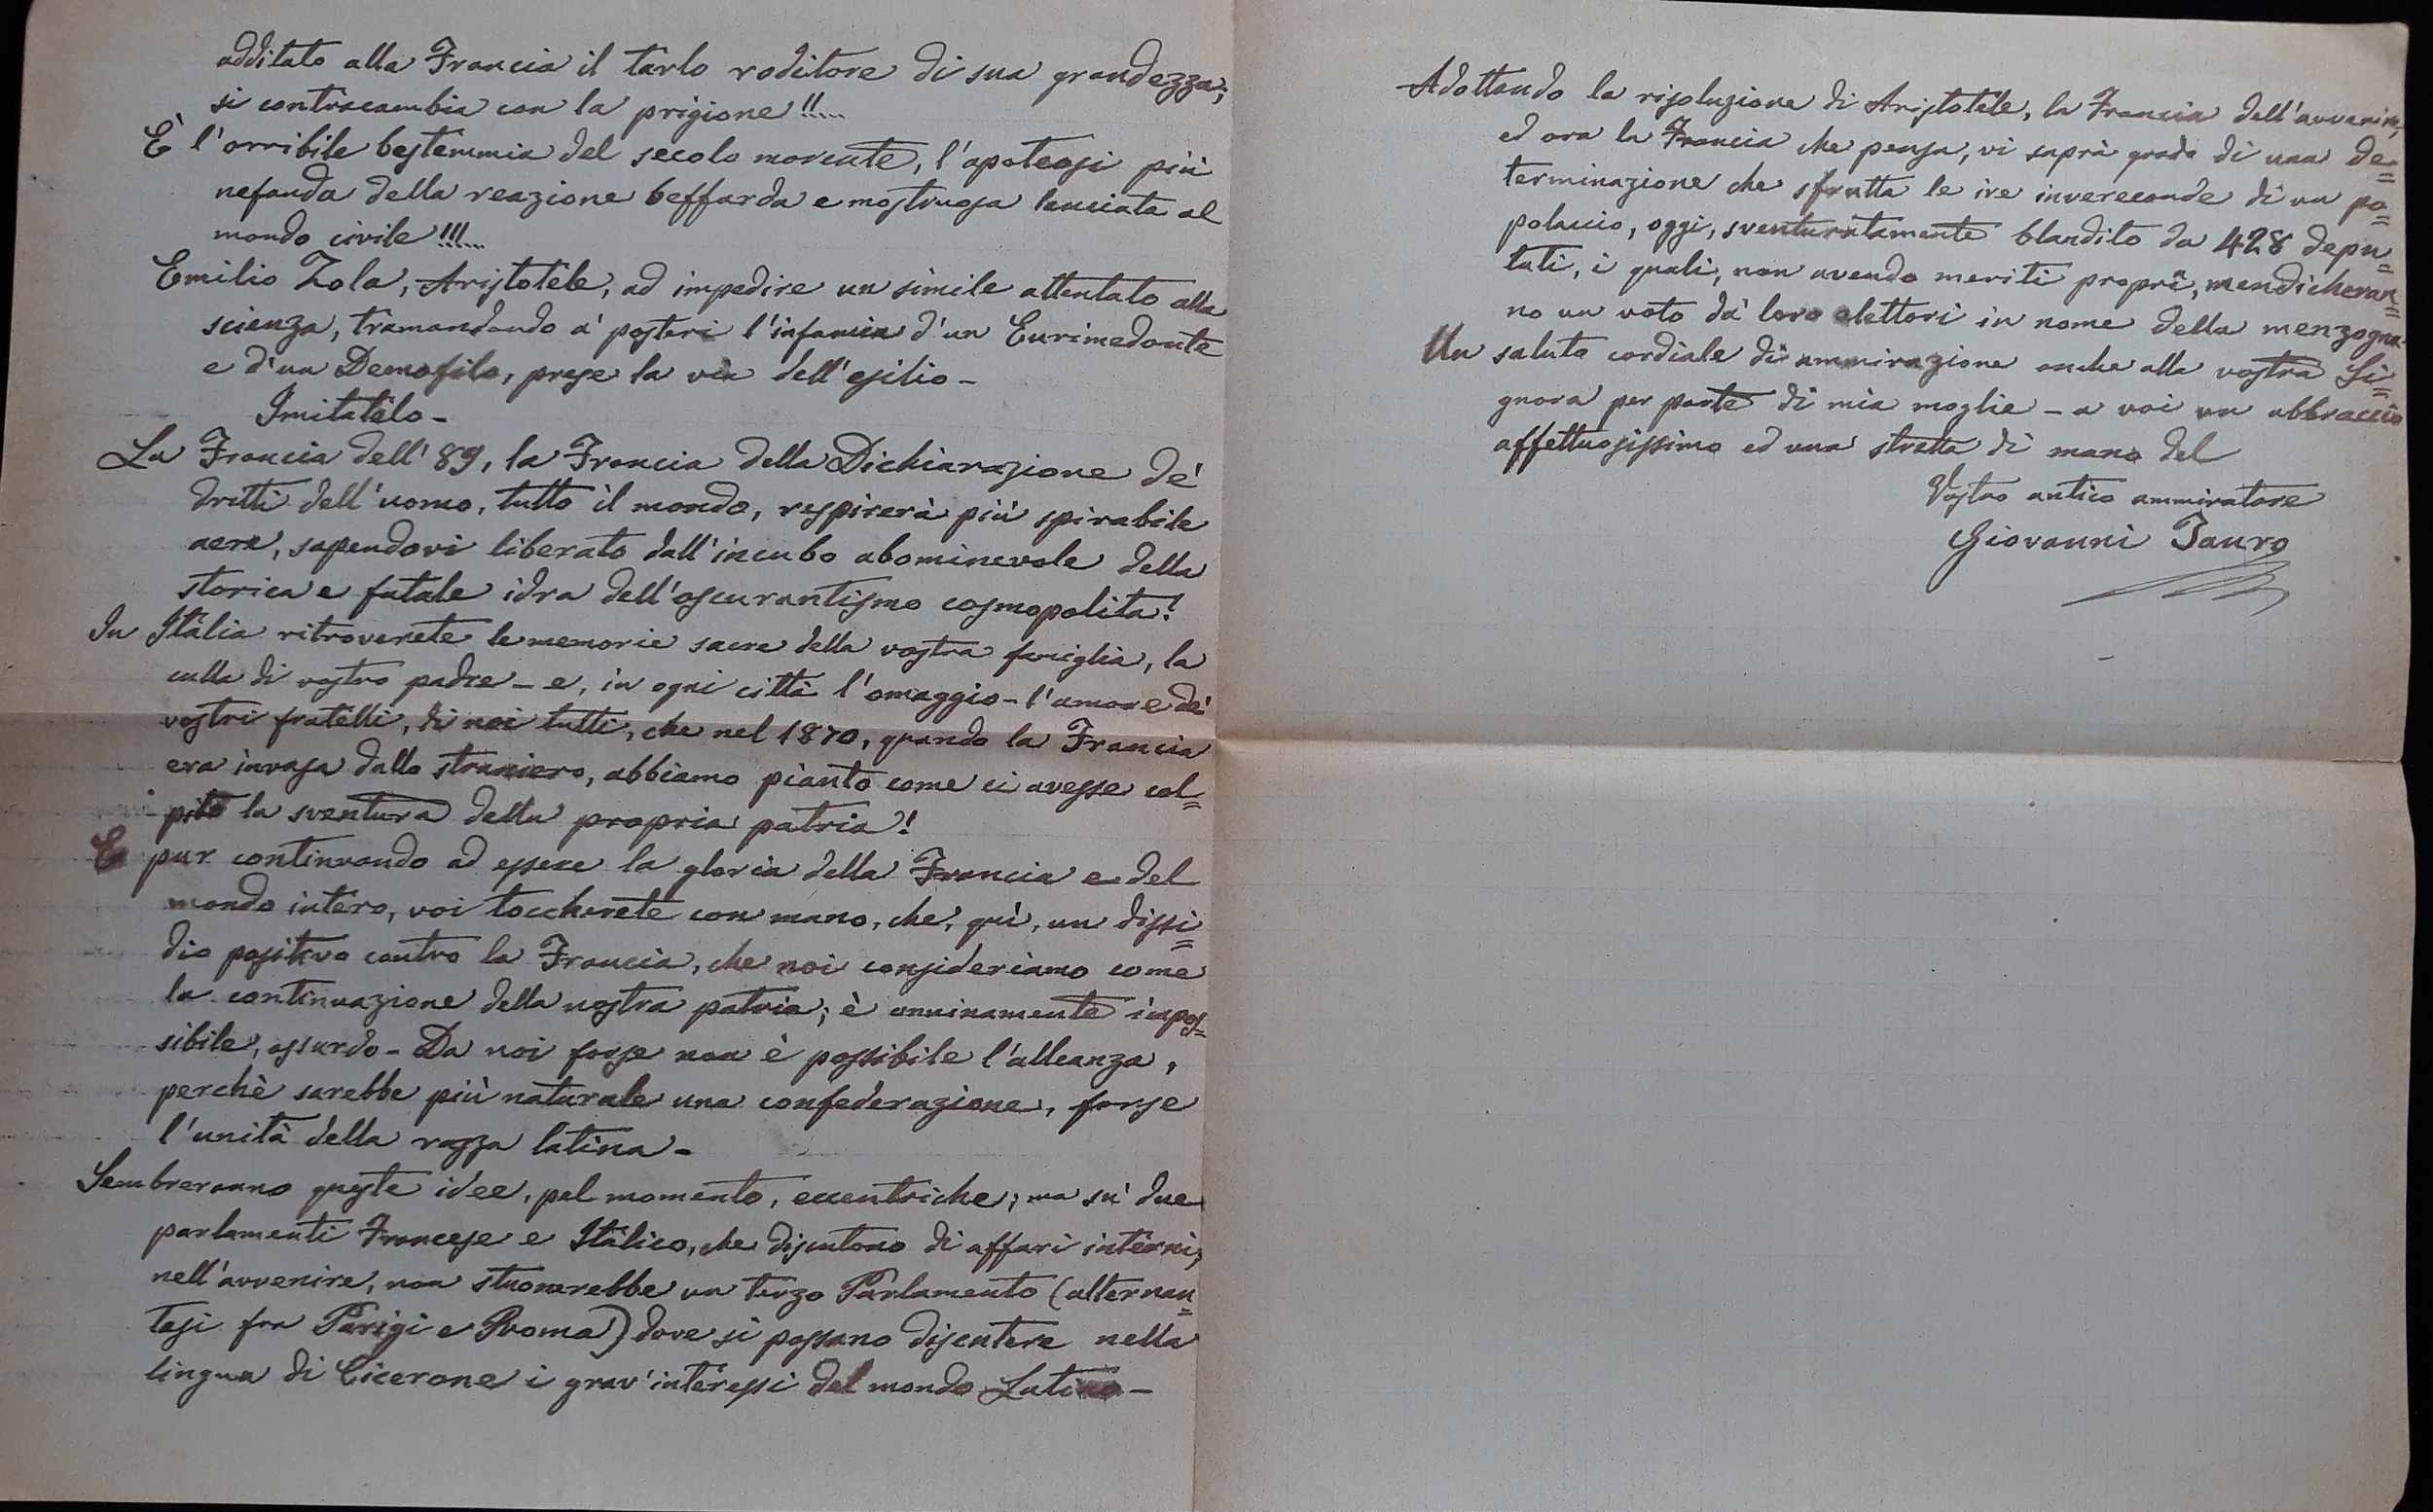 additato alla Francia il tarlo roditore di sua grandezza;
si contraccambia con la prigione!!...
È l'orribile bestemmia del secolo morente, l'apoteosi più
nefanda della reazione beffarda e mostruosa lanciata al
mondo civile!!!...
Emilio Zola, Aristotele, ad impedire un simile attentato alla
scienza, tramandando a' posteri l'infamia d'un Eurimedonte
e d'un Demofilo, prese la via dell'esilio -
Imitatelo -
La Francia dell'89, la Francia della Dichiarazione de'
dritti dell'uomo, tutto il mondo, respirerà più spirabile
aere, sapendovi liberato dall'incubo abominevole della
storica e fatale idra dell'oscurantismo cosmopolita!
In Italia ritroverete le memorie sacre della vostra famiglia, la
culla di vostro padre - e, in ogni città l'omaggio - l'amore de'
vostri fratelli, di noi tutti, che nel 1870, quando la Francia
era invasa dallo straniero, abbiamo pianto come ci avesse col=
pito la sventura della propria patria!
E pur continuando ad essere la gloria della Francia e del
mondo intero, voi toccherete con mano, che, quì, un dissi=
dio positivo contro la Francia, che noi consideriamo come
la continuazione della nostra patria; è onninamente impos=
sibile, assurdo - Da noi forse non è possibile l'alleanza,
perchè sarebbe più naturale una confederazione, forse
l'unità della razza latina -
Sembreranno queste idee, pel momento, eccentriche; ma su' due
parlamenti Francese e Italico, che discutono di affari interni,
nell'avvenire, non stuonerebbe un terzo Parlamento (alternan=
tesi fra Parigi e Roma) dove si possano discutere nella
lingua di Cicerone i grav'interessi del mondo Latino -
Adottando la risoluzione di Aristotele, la Francia dell'avvenire,
ed ora la Francia che pensa, vi saprà grado di una de=
terminazione che sfrutta le ire invereconde di un po=
polaccio, oggi, sventuratamente blandito da 428 depu=
tati, i quali, non avendo meriti proprî, mendicheran=
no un voto da' loro elettori in nome della menzogna -
Un saluto cordiale di ammirazione anche alla vostra Si=
gnora per parte di mia moglie - a voi un abbraccio
affettuosissimo ed una stretta di mano del
Vostro antico ammiratore
Giovanni Tauro